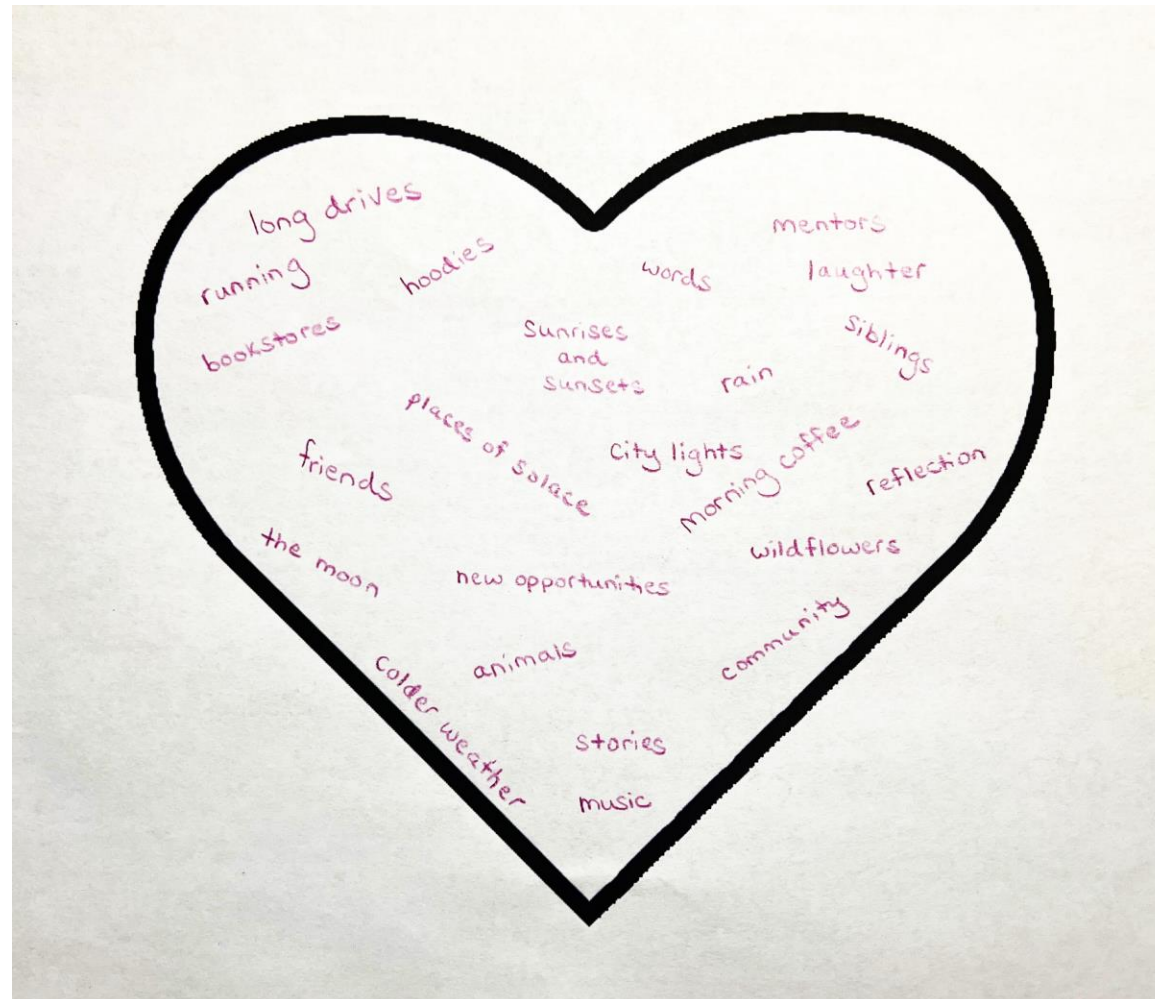 long drives
mentors
hoodies
words
laughter
running
bookstores
Sunrises
and
sunsets
siblings
rain
places of solace
City lights
morning coffee
friends
reflection
the moon
wildflowers
new opportunities
community
animals
Colder weather
stories
music